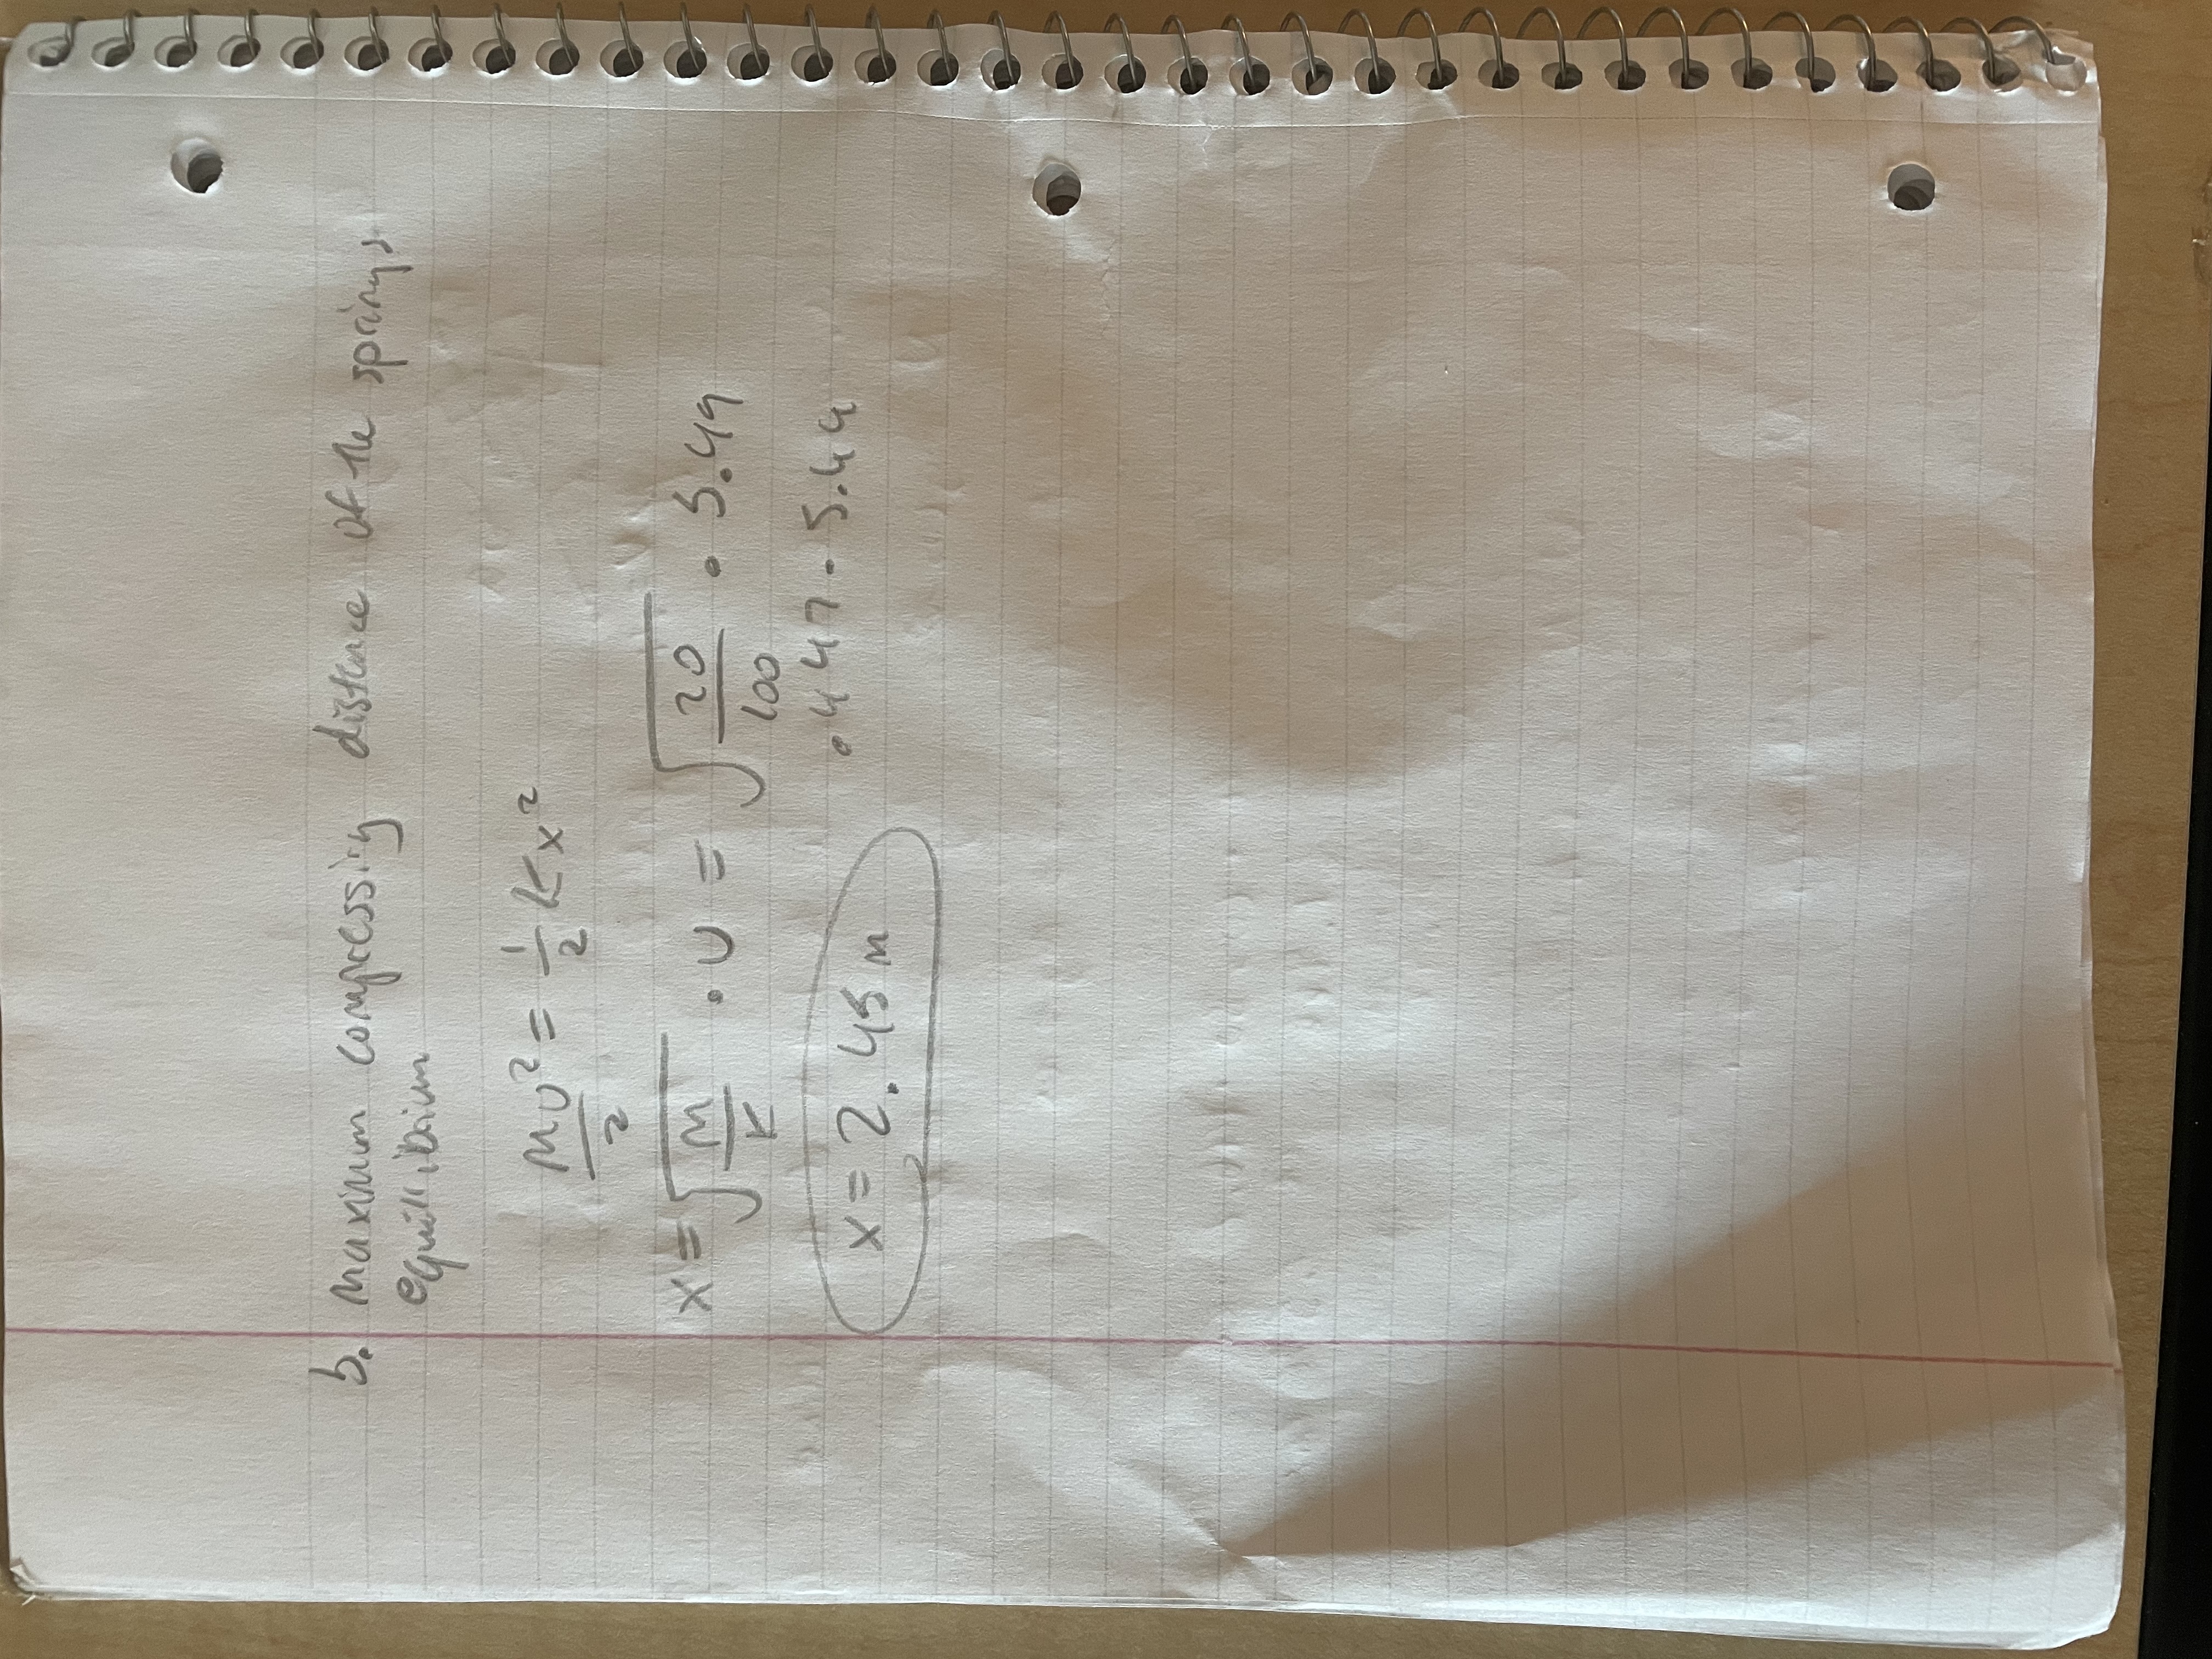 b. maximum compressing distance of the springs
equillibrium
Mv²/2 = 1/2 Kx²
x = √(M/K) · v = √(20/100) · 5.49
.447 · 5.44
x = 2.45 m